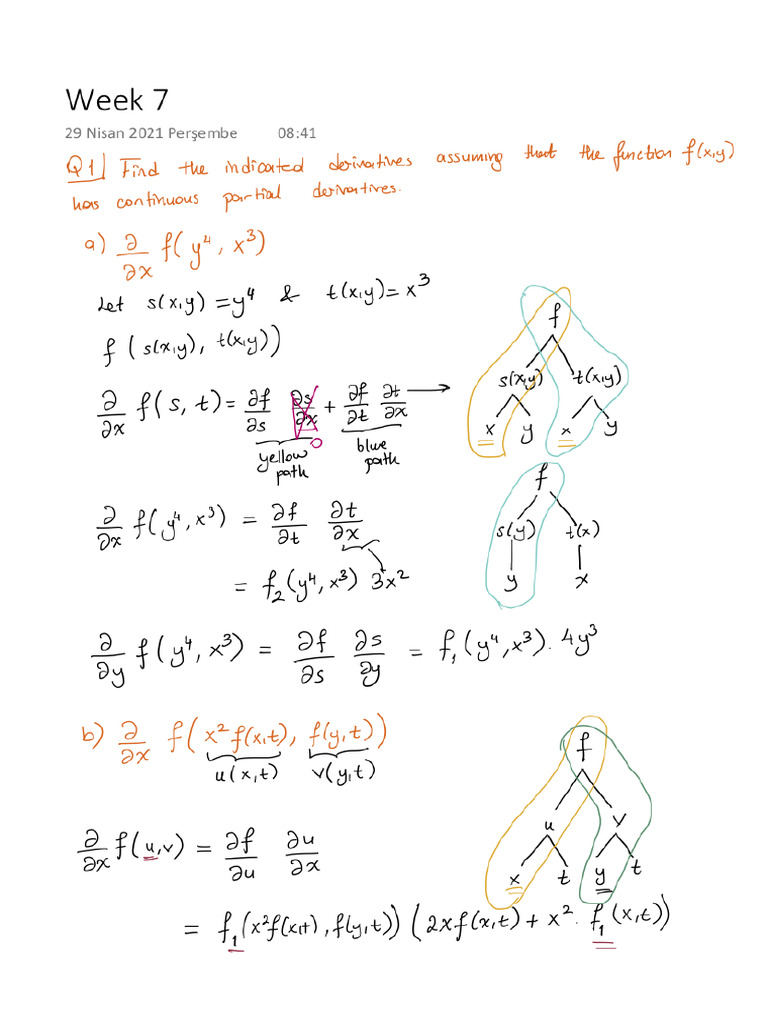 Week 7
29 Nisan 2021 Perşembe 08:41
Q1) Find the indicated derivatives assuming that the function f(x,y)
has continuous partial derivatives.
a) ∂/∂x f(y⁴, x³)
Let s(x,y) = y⁴ & t(x,y) = x³
f(s(x,y), t(x,y))
∂/∂x f(s, t) = ∂f/∂s ∂s/∂x + ∂f/∂t ∂t/∂x →
0
yellow path
blue path
f
s(x,y) t(x,y)
x y x y
∂/∂x f(y⁴, x³) = ∂f/∂t ∂t/∂x
= f₂(y⁴, x³) 3x²
f
s(y) t(x)
y x
∂/∂y f(y⁴, x³) = ∂f/∂s ∂s/∂y = f₁(y⁴, x³) · 4y³
b) ∂/∂x f(x²f(x,t), f(y,t))
u(x,t) v(y,t)
f
u v
x t y t
∂/∂x f(u,v) = ∂f/∂u ∂u/∂x
= f₁(x²f(x,t), f(y,t)) (2xf(x,t) + x² · f₁(x,t))